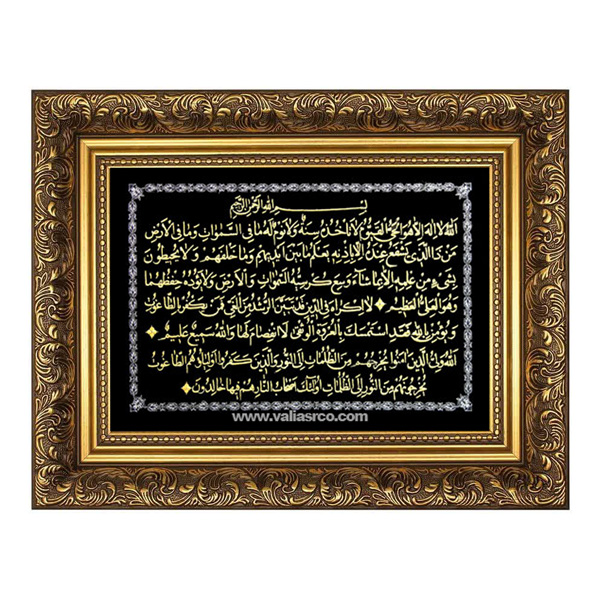 بسم الله الرحمن الرحیم
الله لا اله الا هو الحی القیوم لا تأخذه سنة ولا نوم له ما فی السموات وما فی الارض
من ذا الذی یشفع عنده الا باذنه یعلم ما بین ایدیهم وما خلفهم ولا یحیطون
بشیء من علمه الا بما شاء وسع کرسیه السموات والارض ولا یؤده حفظهما
وهو العلی العظیم لا اکراه فی الدین قد تبین الرشد من الغی فمن یکفر بالطاغوت
و یؤمن بالله فقد استمسک بالعروة الوثقی لا انفصام لها والله سمیع علیم
الله ولی الذین آمنوا یخرجهم من الظلمات الی النور والذین کفروا اولیاؤهم الطاغوت
یخرجونهم من النور الی الظلمات اولئک اصحاب النار هم فیها خالدون
www.valiasrco.com